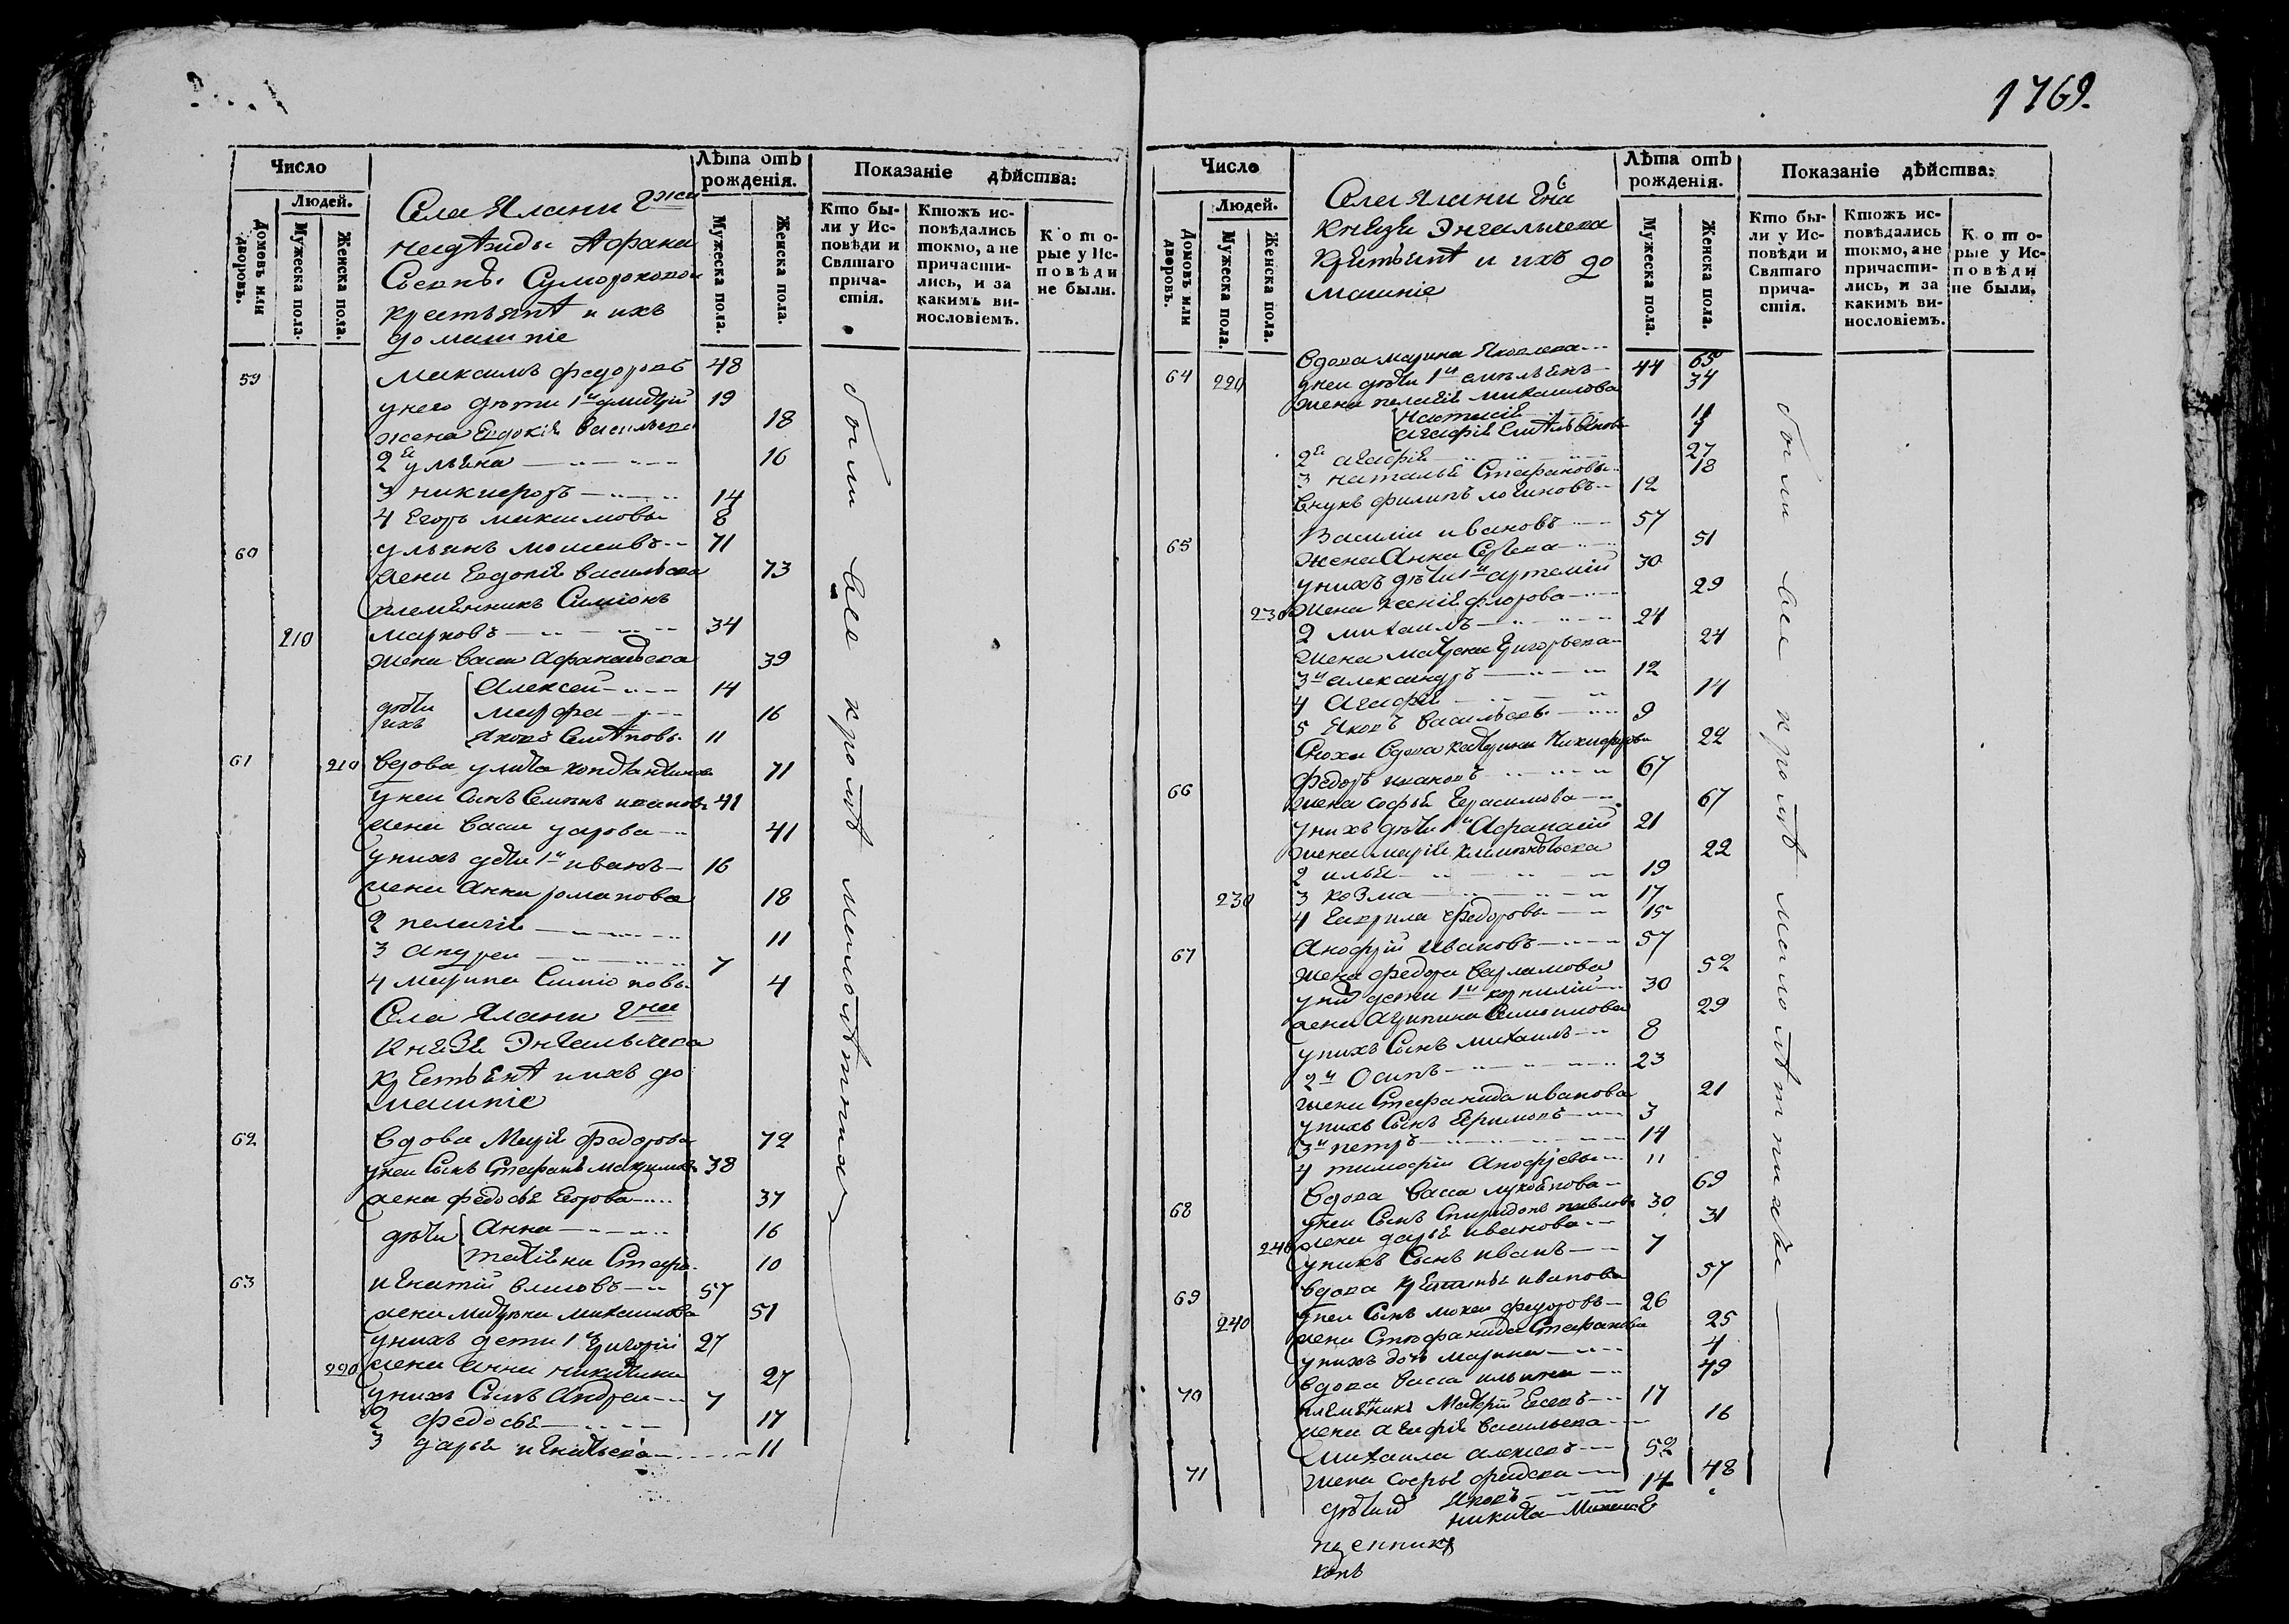 1769.
Число
Людей.
Домовъ или дворовъ.
Мужеска пола.
Женска пола.
Лѣта отъ рожденія.
Мужеска пола.
Женска пола.
Показаніе дѣйства:
Кто были у Исповѣди и Святаго причастія.
Ктожъ исповѣдались токмо, а не причастились, и за какимъ винословіемъ.
Которые у Исповѣди не были.
Села Ялани Гжи
Надѣжды Афана
Сьевны Сумороковой
крестьянѣ и ихъ
домашніе
59 Максимъ федоровъ 48
у него дѣти 1й дмитрій 19
жена Евдокія васильева 18
2я ульяна 16
3 никифоръ 14
4 Егоръ максимовы 8
60 ульянъ 71
жена Евдокія васильева 73
племянникъ Симіонъ
210 марковъ 34
жена васса Афанасьева 39
дѣти ихъ Алексей 14
марфа 16
Яковъ 11
61 210 вдова улита константинова 71
у неи сынъ Семенъ ивановъ 41
жена васса уарова 41
у нихъ дѣти 1й иванъ 16
жена Анна романова 18
2 пелагія 11
3 андреи 7
4 марина Симіоновы 4
Села Ялани Гна
Князя Энгалычева
крестьянѣ и ихъ до
машніе
62 вдова Марія федорова 72
у неи сынъ Стефанъ максимовъ 38
жена федосья Егорова 37
дѣти Анна 16
татіяна Стефа. 10
63 игнатій 57
жена матрена михаилова 51
у нихъ дети 1й григорій 27
220 жена анна никитина 27
у нихъ сынъ Андреи 7
2 федосья 17
3 дарья игнатьева 11
были все кромѣ малолѣтнихъ
Число
Людей.
Домовъ или дворовъ.
Мужеска пола.
Женска пола.
Лѣта отъ рожденія.
Мужеска пола.
Женска пола.
Показаніе дѣйства:
Кто были у Исповѣди и Святаго причастія.
Ктожъ исповѣдались токмо, а не причастились, и за какимъ винословіемъ.
Которые у Исповѣди не были.
Села Ялани Гна
Князя Энгалычева
Крестьянѣ и ихъ до
машніе
64 вдова марина Яковлева 65
220 у неи дѣти 1й емельянъ 44
жена пелагія михаилова 34
настасія 11
агафія Емельяновы 7
2я агафія 27
3 наталья Стефановы 18
внукъ филипъ логиновъ 12
65 Василіи ивановъ 57
жена Анна 51
у нихъ дѣти 1й артемій 30
230 жена ксенія флорова 29
2 михаилъ 24
жена матрена григорьева 24
3й александръ 12
4 агафія 14
5 Яковъ васильевы 9
сноха вдова катерина Никифорова 22
66 федоръ ивановъ 67
жена софья герасимова 67
у нихъ дѣти 1й Афанасій 21
жена марія 22
2 илья 19
230 3 козма 17
4 гаврила федоровы 15
67 анофрій ивановъ 57
жена федора варламова 52
дети 1й корнилій 30
жена агрипина 29
у нихъ сынъ михаилъ 8
2й Осипъ 23
жена Стефанида иванова 21
у нихъ сынъ 3
3й петръ 14
4 тимофіи анофріевы 11
68 вдова васса 69
у неи сынъ Спиридонъ павловъ 30
240 жена дарья иванова 31
у нихъ сынъ иванъ 7
69 вдова иванова 57
240 у неи сынъ мокеи федоровъ 26
жена Стефанида Стефанова 25
у нихъ дочь марина 4
70 вдова васса ильина 49
племянникъ 17
жена агафія васильева 16
71 михаила алексеевъ 52
жена софья 48
дѣти Яковъ 14
никита 8
были все кромѣ малолѣтнихъ